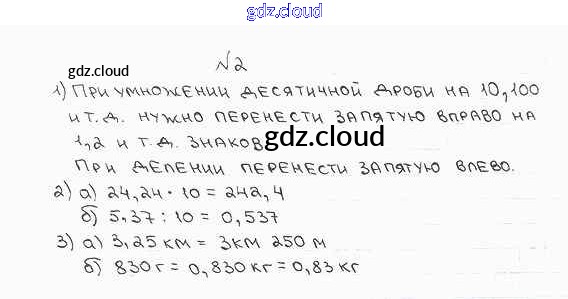 gdz.cloud
№2
gdz.cloud
1) При умножении десятичной дроби на 10,100
и т.д. нужно перенести запятую вправо на
1,2 и т.д. знаков
gdz.cloud
При делении перенести запятую влево.
2) а) 24,24 · 10 = 242,4
б) 5,37 : 10 = 0,537
3) а) 3,25 км = 3км 250 м
б) 830г = 0,830 кг = 0,83 кг